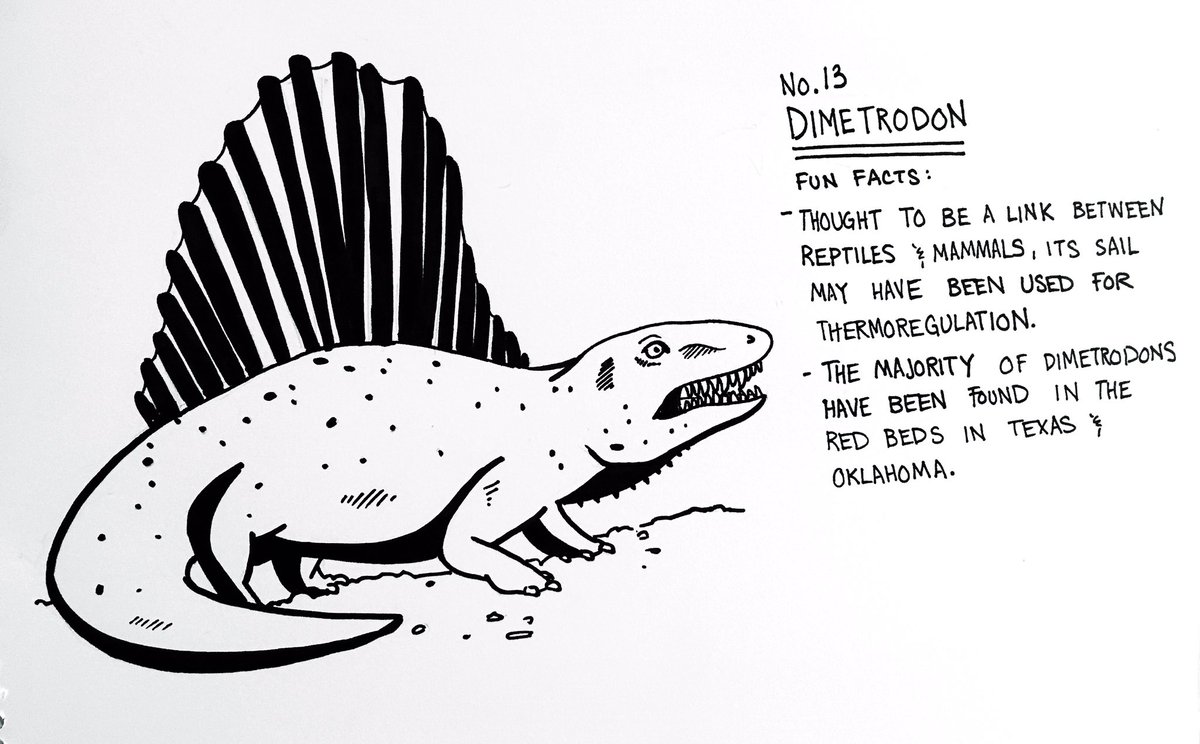 No.13
DIMETRODON
FUN FACTS:
- THOUGHT TO BE A LINK BETWEEN
REPTILES & MAMMALS, ITS SAIL
MAY HAVE BEEN USED FOR
THERMOREGULATION.
- THE MAJORITY OF DIMETRODONS
HAVE BEEN FOUND IN THE
RED BEDS IN TEXAS &
OKLAHOMA.